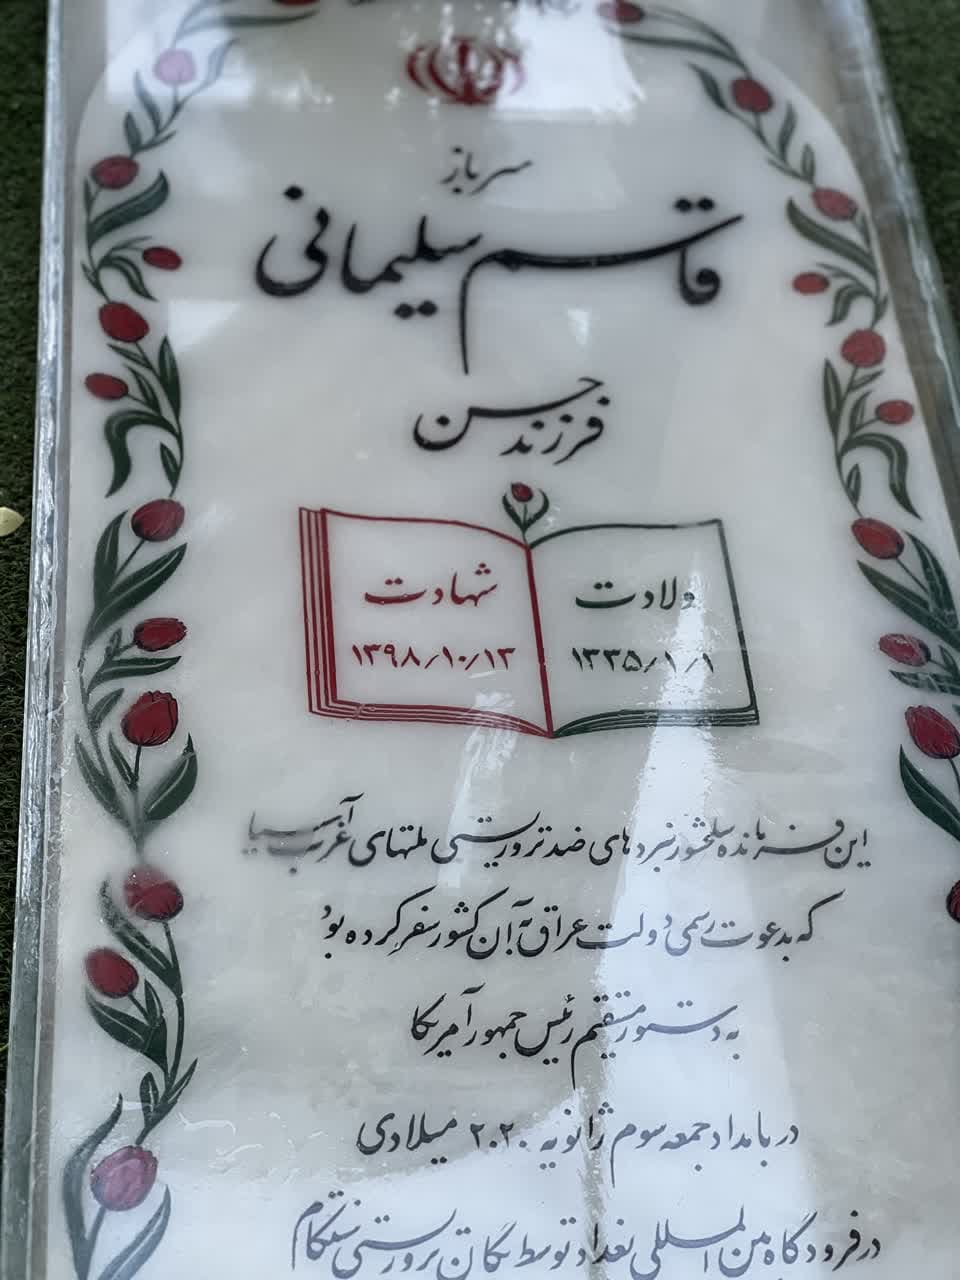 سرباز
قاسم سلیمانی
فرزند حسن
ولادت
۱۳۳۵/۱/۱
شهادت
۱۳۹۸/۱۰/۱۳
این فرمانده سلحشور نبردهای ضد تروریستی ملتهای غرب آسیا
که بدعوت رسمی دولت عراق به آن کشور سفر کرده بود
به دستور مستقیم رئیس جمهور آمریکا
در بامداد جمعه سوم ژانویه ۲۰۲۰ میلادی
در فرودگاه بین المللی بغداد توسط یگان تروریستی سنتکام